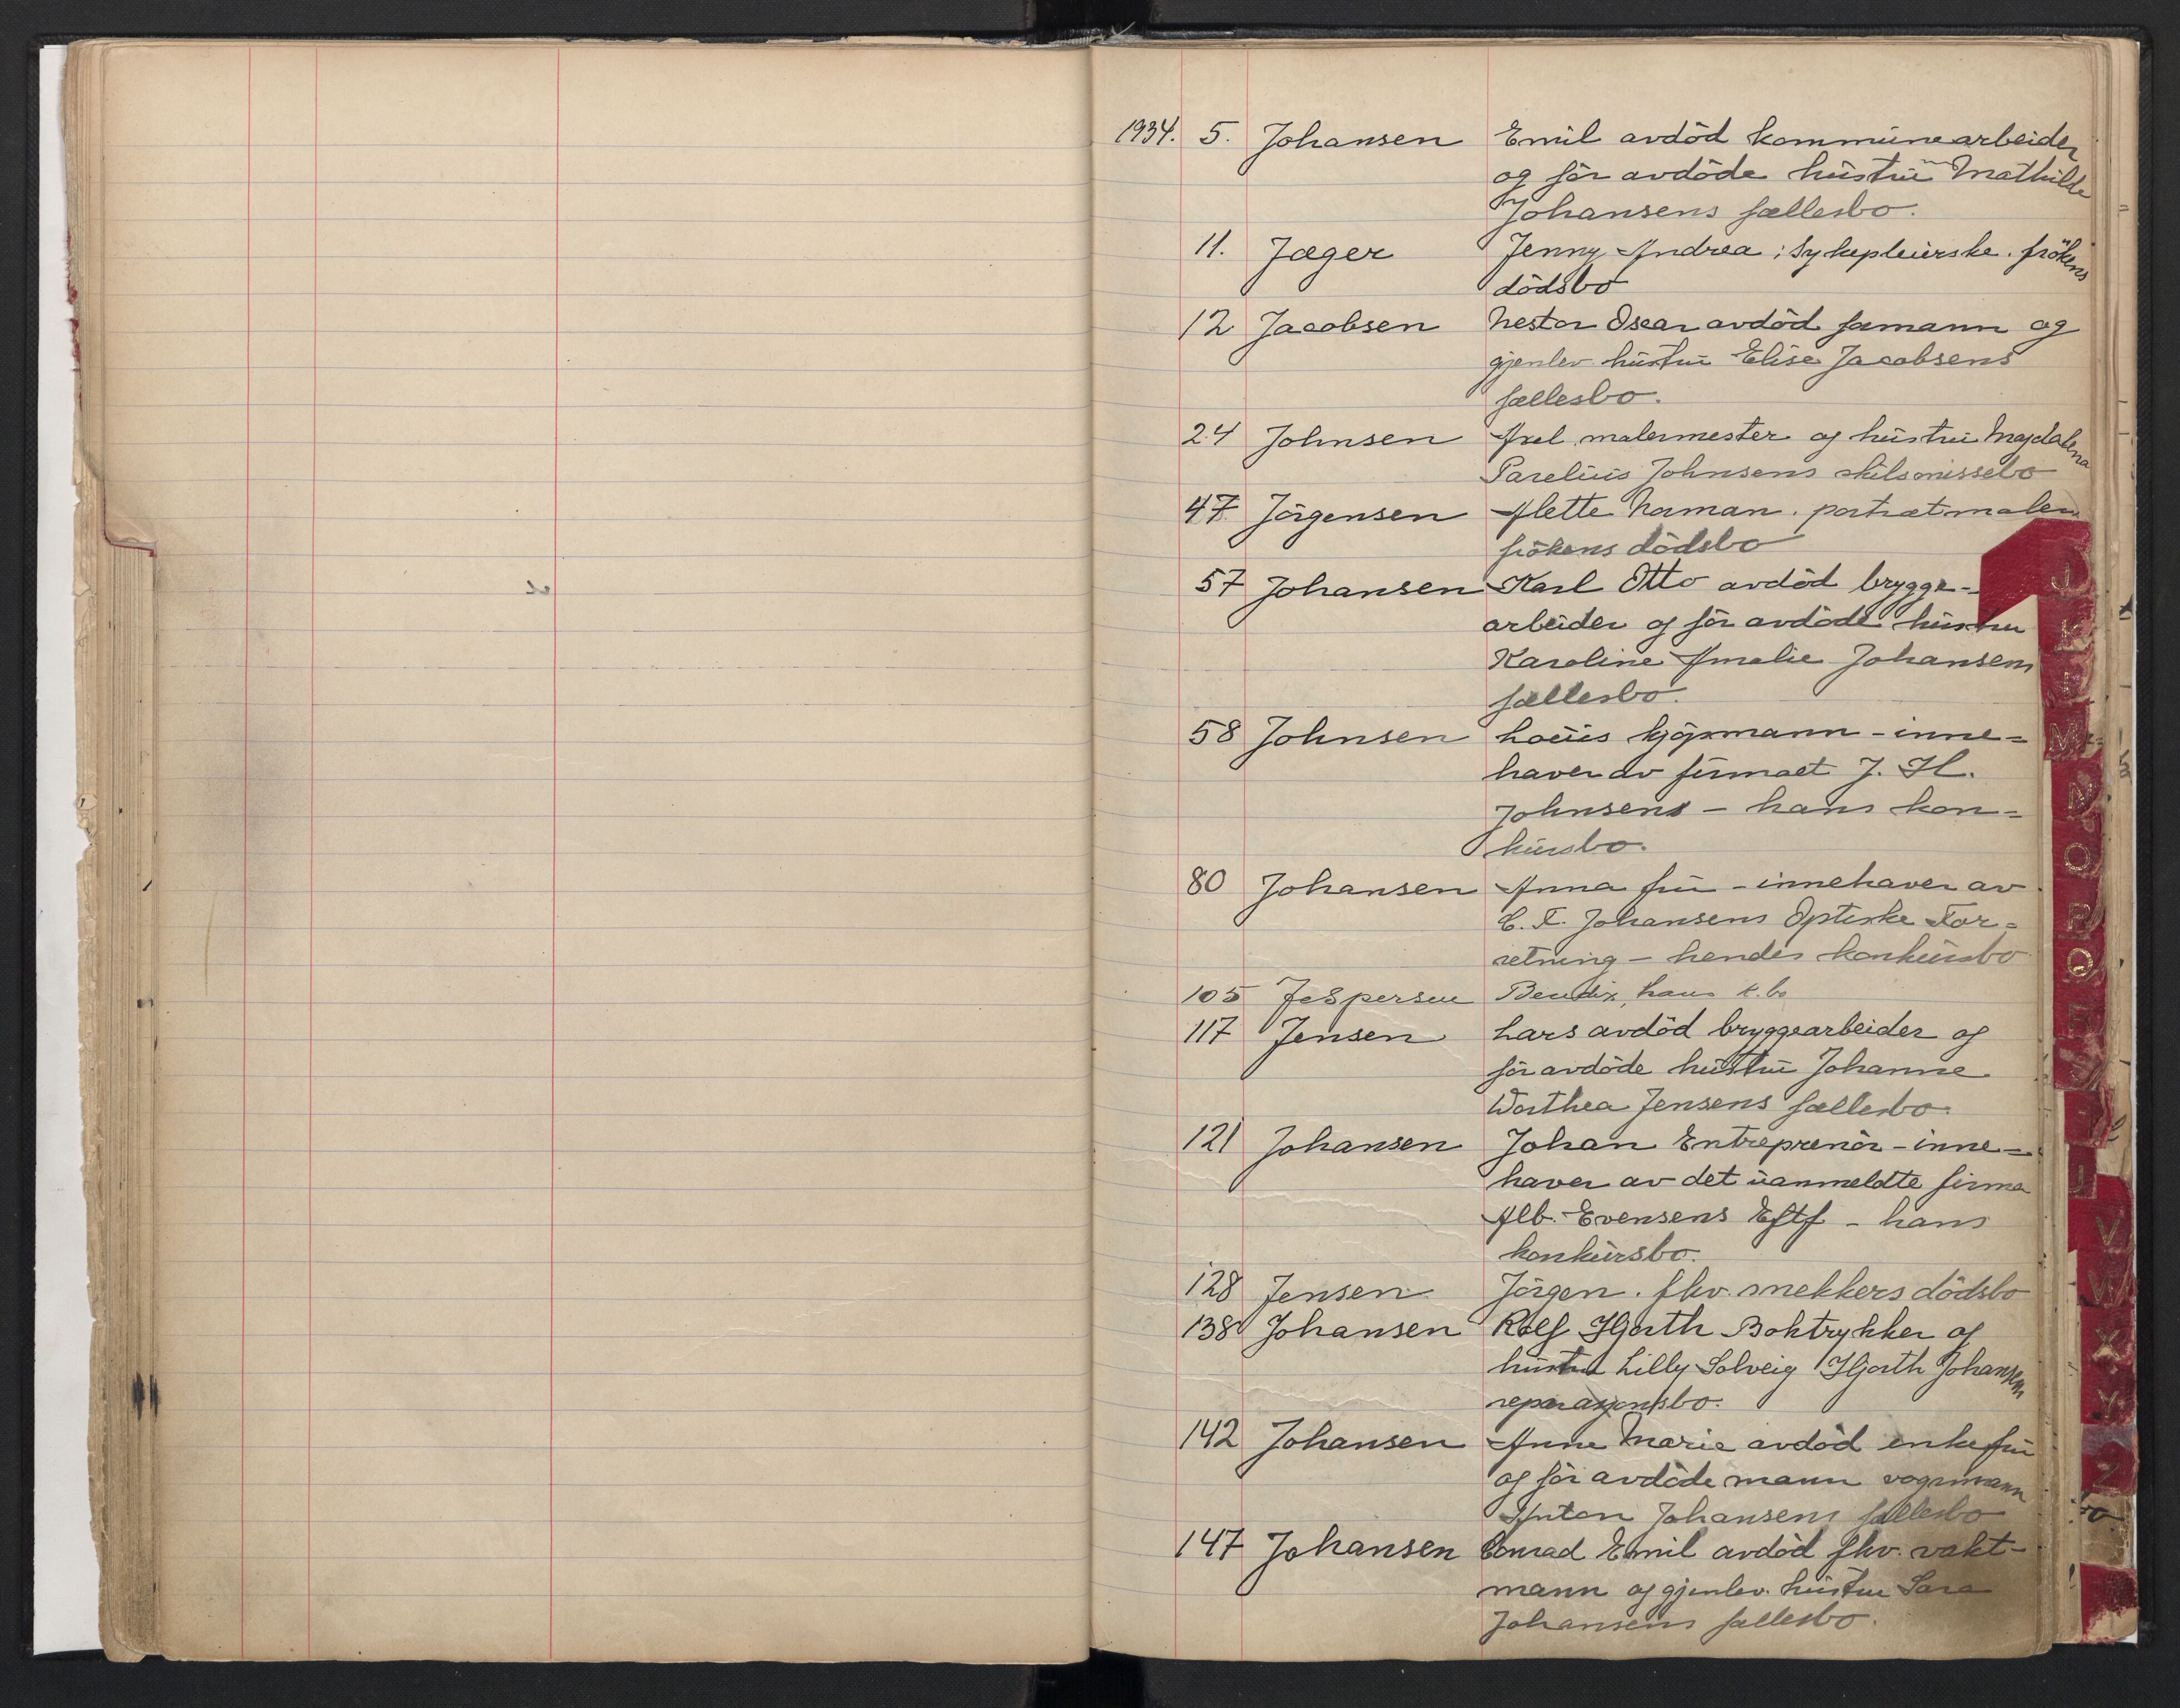 1934. 5. Johansen Emil avdød kommunearbeider
og før avdøde hustru Mathilde
Johansens fællesbo.
11. Jæger Jenny Andrea: Sykepleierske. frøkens
dødsbo
12 Jacobsen Nestor Oscar avdød sømann og
gjenlev hustru Elise Jacobsens
fællesbo.
24 Johnsen Axel malermester og hustru Magdalena
Parelius Johnsens skilsmissebo
47 Jørgensen Alette Naman. portrætmaler
frøkens dødsbo
57 Johansen Karl Otto avdød brygge-
arbeider og før avdøde hustru
Karoline Amalie Johansens
fællesbo.
58 Johnsen Louis kjøpmann - inne=
haver av firmaet J. H.
Johnsens - hans kon=
kursbo.
80 Johansen Anna fru - innehaver av
C. F. Johansens Optiske For=
retning - hendes konkursbo
105 Jespersen Bendix, hans k.bo
117 Jensen Lars avdød bryggearbeider og
før avdøde hustru Johanne
Dorthea Jensens fællesbo.
121 Johansen Johan Entreprenør - inne=
haver av det uanmeldte firma
Alb. Evensens Eftf - hans
konkursbo.
128 Jensen Jørgen. fhv. snekkers dødsbo
138 Johansen Rolf Hjorth Boktrykker og
hustru Lilly Solveig Hjorth Johansens
reparasjonsbo.
142 Johansen Anne Marie avdød enkefru
og før avdøde mann vognmann
Anton Johansens fællesbo
147 Johansen Conrad Emil avdød fhv. vakt-
mann og gjenlev. hustru Sara
Johansens fællesbo.
J
K
L
M
N
O
P
Q
R
S
T
U
V
W
X
Y
Z